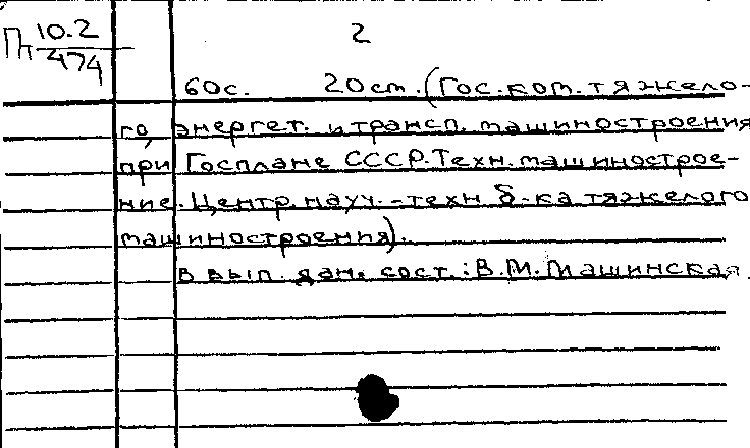 Пт 10.2
474
2
60с. 20см. (Гос.ком. тяжело-
го, энергет. и трансп. машиностроения
при Госплане СССР. Техн. машинострое-
ние. Центр. науч.-техн. б-ка тяжелого
машиностроения).
В вып. дан. сост.: В.М. Машинская.